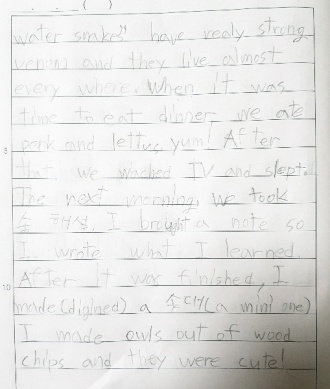 water snakes" have realy strong
venum and they live almost
every where. When it was
time to eat dinner we ate
pork and lettus, yum! After
that, we wached TV and slept.
The next morning, we took
숲 해설. I brought a note so
I wrote what I learned.
After it was finished, I
made (digined) a 솟대 (a mini one)
I made owls out of wood
chips and they were cute!
5
10